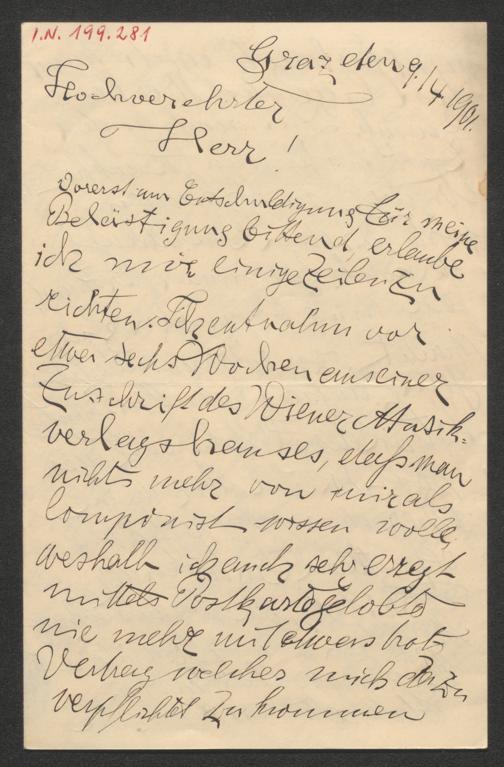 I.N. 199.281
Graz den 9./4 1901.
Hochverehrter
Herr!
Vorerst um Entschuldigung für meine
Belästigung bittend, erlaube
ich mir einige Zeilen zu
richten. Ich entnahm vor
etwa sechs Wochen aus einer
Zuschrift des Wiener Musik-
verlagshauses, daß man
nichts mehr von mir als
Componist wissen wolle,
weshalb ich auch sehr erregt
mittels Postkarte gelobte
nie mehr mit etwas trotz
Vertrag welches mich dazu
verpflichtet zu kommen